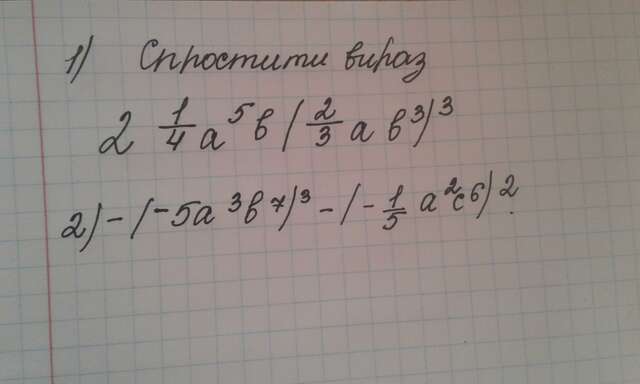 1) Спростити вираз
2 1/4 a⁵b (2/3 a b³)³
2) -(-5a³b⁷)³ - (-1/5 a²c⁶)².